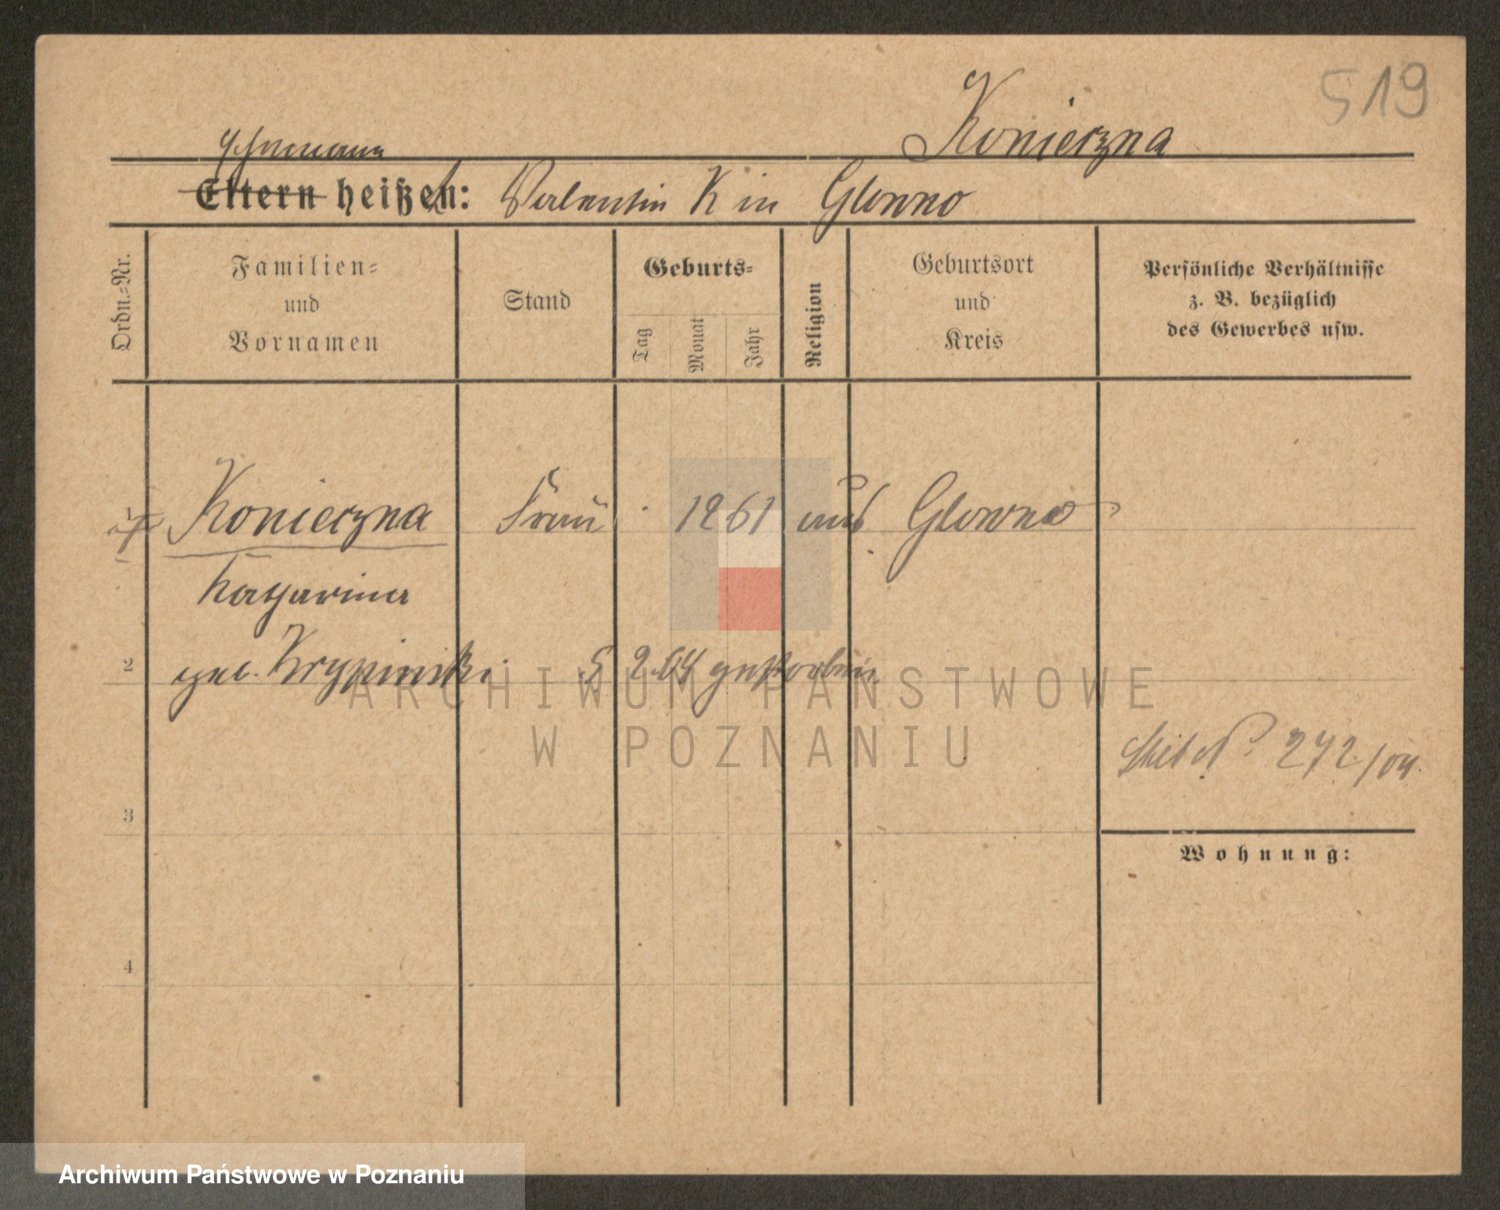 519
Konieczna
Ehemann
Eltern heißen: Valentin K in Glowno
Ordn.-Nr.
Familien-
und
Vornamen
Stand
Geburts-
Tag
Monat
Jahr
Religion
Geburtsort
und
Kreis
Persönliche Verhältnisse
z. B. bezüglich
des Gewerbes usw.
Konieczna Frau 1861 aus Glowno
Katharina
2 geb. Krypinski 5 2 04 gestorben
ARCHIWUM PAŃSTWOWE
W POZNANIU
№ 272/04.
3
Wohnung:
4
Archiwum Państwowe w Poznaniu